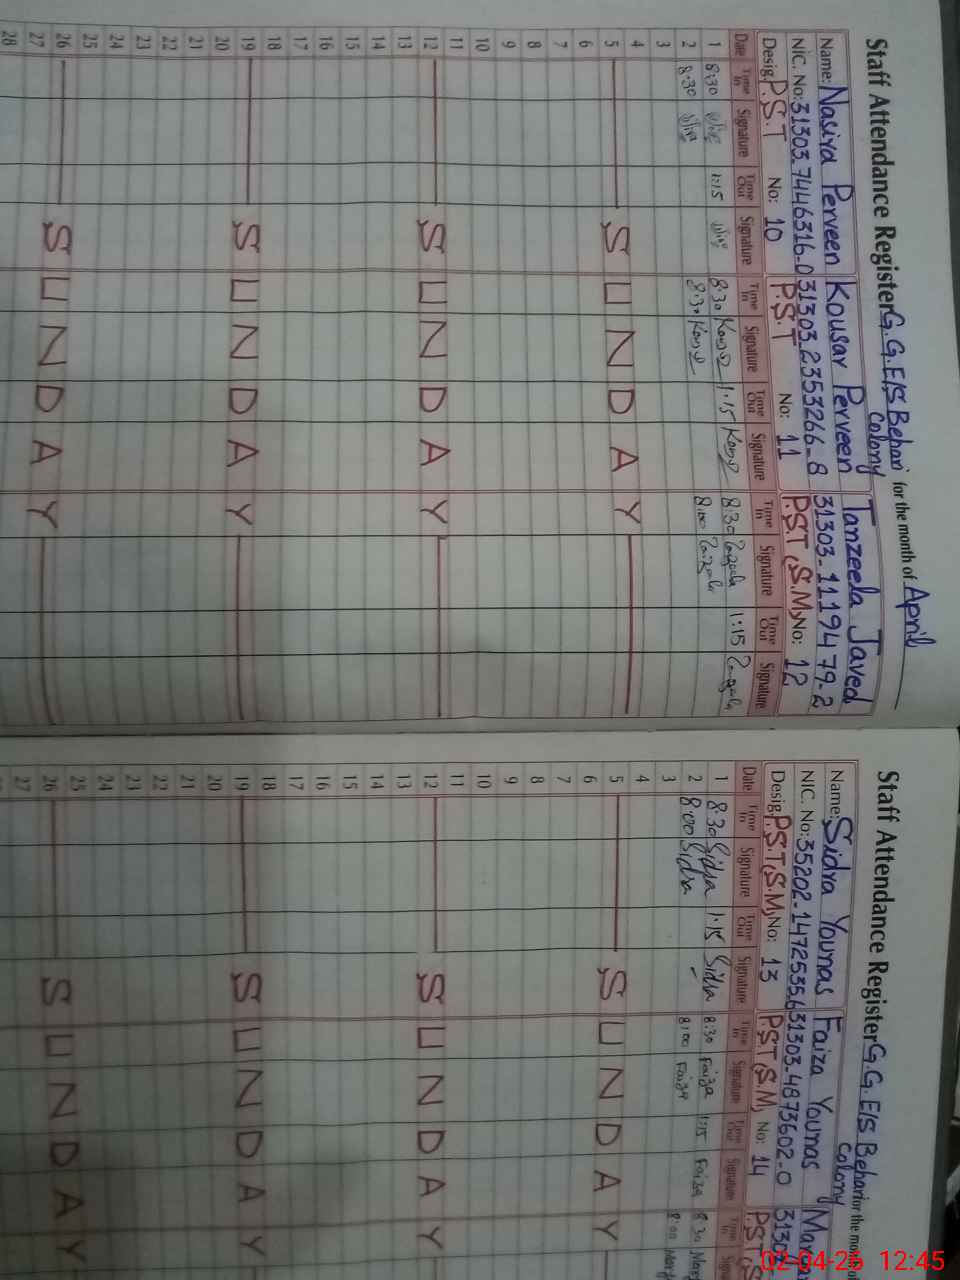 Staff Attendance Register G.G.E/S Behari Colony for the month of April
Name: Nasira Perveen Kousar Perveen Tanzeela Javed
NIC. No: 31303-7446316-0 31303-2353266-8 31303-1119479-2
Desig. P.S.T No: 10 P.S.T No: 11 P.S.T (S.M) No: 12
Date Time In Signature Time Out Signature Time In Signature Time Out Signature Time In Signature Time Out Signature
1 8:30 1:15 8:30 1:15 8:30 1:15
2 8:30 8:30 8:00
3
4
5 SUNDAY
6
7
8
9
10
11
12 SUNDAY
13
14
15
16
17
18
19 SUNDAY
20
21
22
23
24
25
26 SUNDAY
27
28
Staff Attendance Register G.G.E/S Behari Colony for the month
Name: Sidra Younas Faiza Younas
NIC. No: 35202-1472535-6 31303-4873602-0
Desig. P.S.T (S.M) No: 13 P.S.T (S.M) No: 14 P.S.T
Date Time In Signature Time Out Signature Time In Signature Time Out Signature Time In Signature
1 8:30 Sidra 1:15 Sidra 8:30 Faiza 1:15 Faiza 8:30
2 8:00 Sidra 8:00 Faiza 8:00
3
4
5 SUNDAY
6
7
8
9
10
11
12 SUNDAY
13
14
15
16
17
18
19 SUNDAY
20
21
22
23
24
25
26 SUNDAY
27
02-04-26 12:45